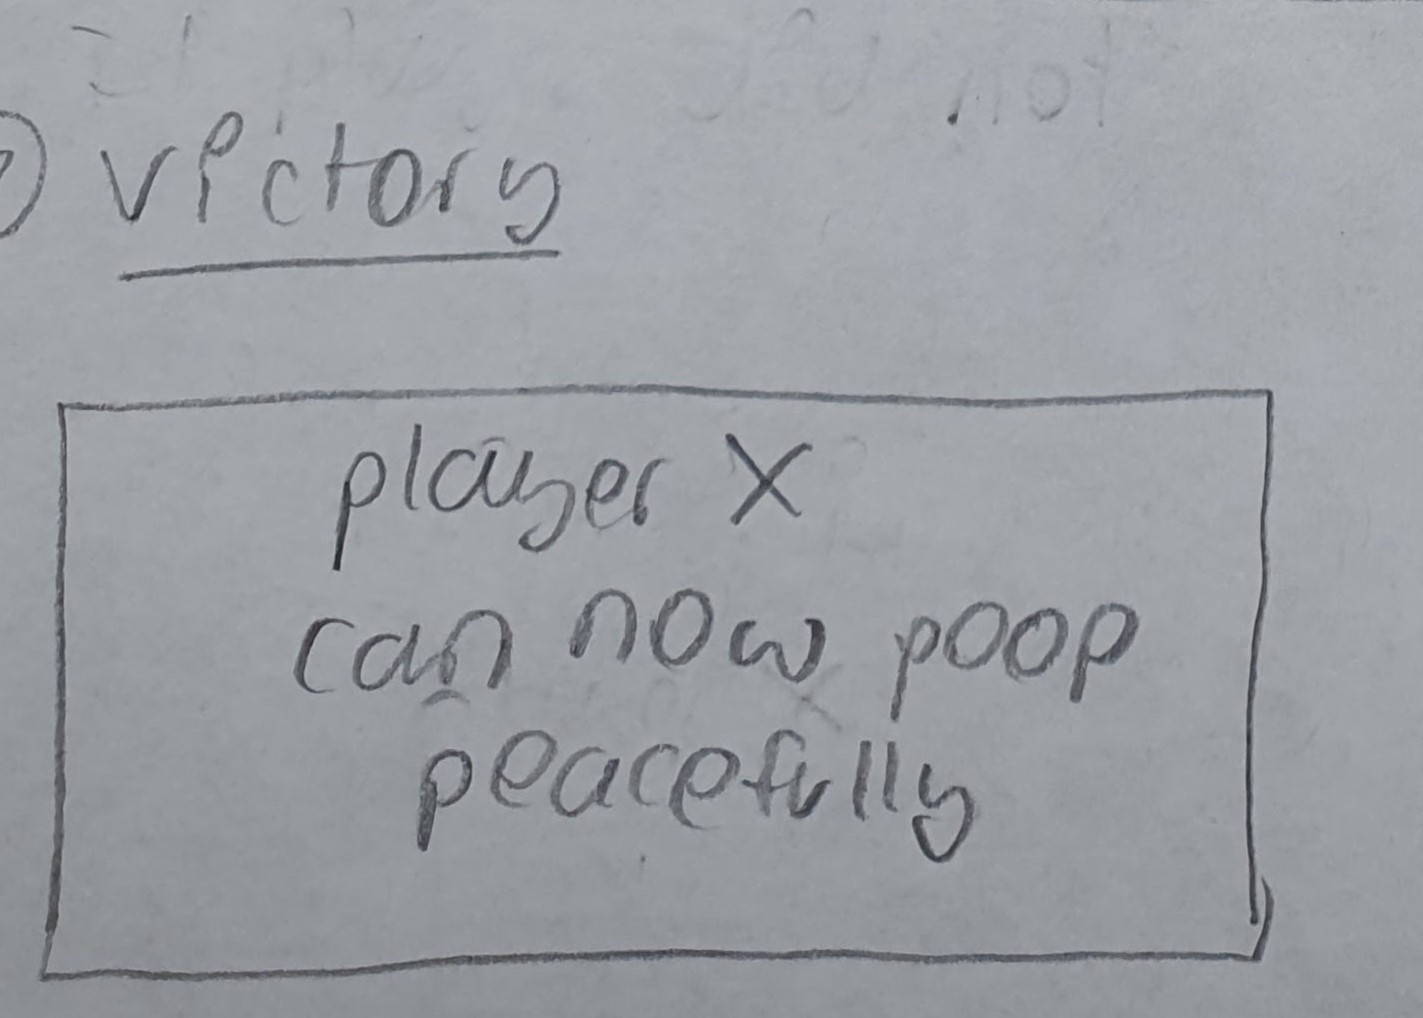 victory
player X
can now poop
peacefully